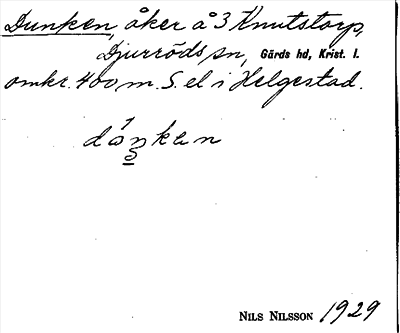 Dunken, åker å 3 Knutstorp,
Djurröds sn, Gärds hd, Krist. l.
omkr. 400 m. S. el i Helgestad.
dåŋkɘn
NILS NILSSON 1929